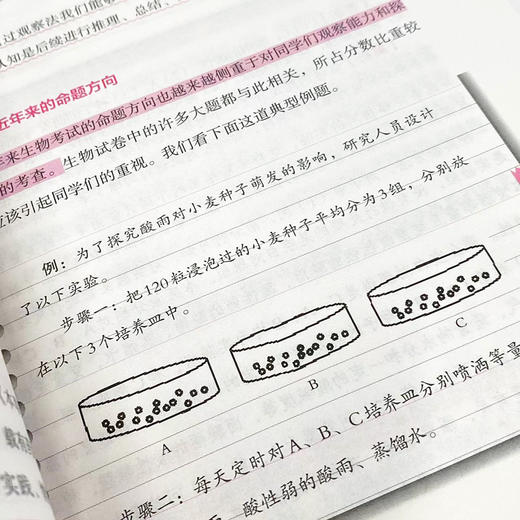 过观察法我们能够
认知是后续进行推理、总结、
近年来的命题方向
年来生物考试的命题方向也越来越侧重于对同学们观察能力和探
的考查。生物试卷中的许多大题都与此相关，所占分数比重较
应该引起同学们的重视。我们看下面这道典型例题。
例：为了探究酸雨对小麦种子萌发的影响，研究人员设计
了以下实验。
步骤一：把120粒浸泡过的小麦种子平均分为3组，分别放
在以下3个培养皿中。
A
B
C
步骤二：每天定时对A、B、C培养皿分别喷洒等量
酸性弱的酸雨、蒸馏水。
实践、